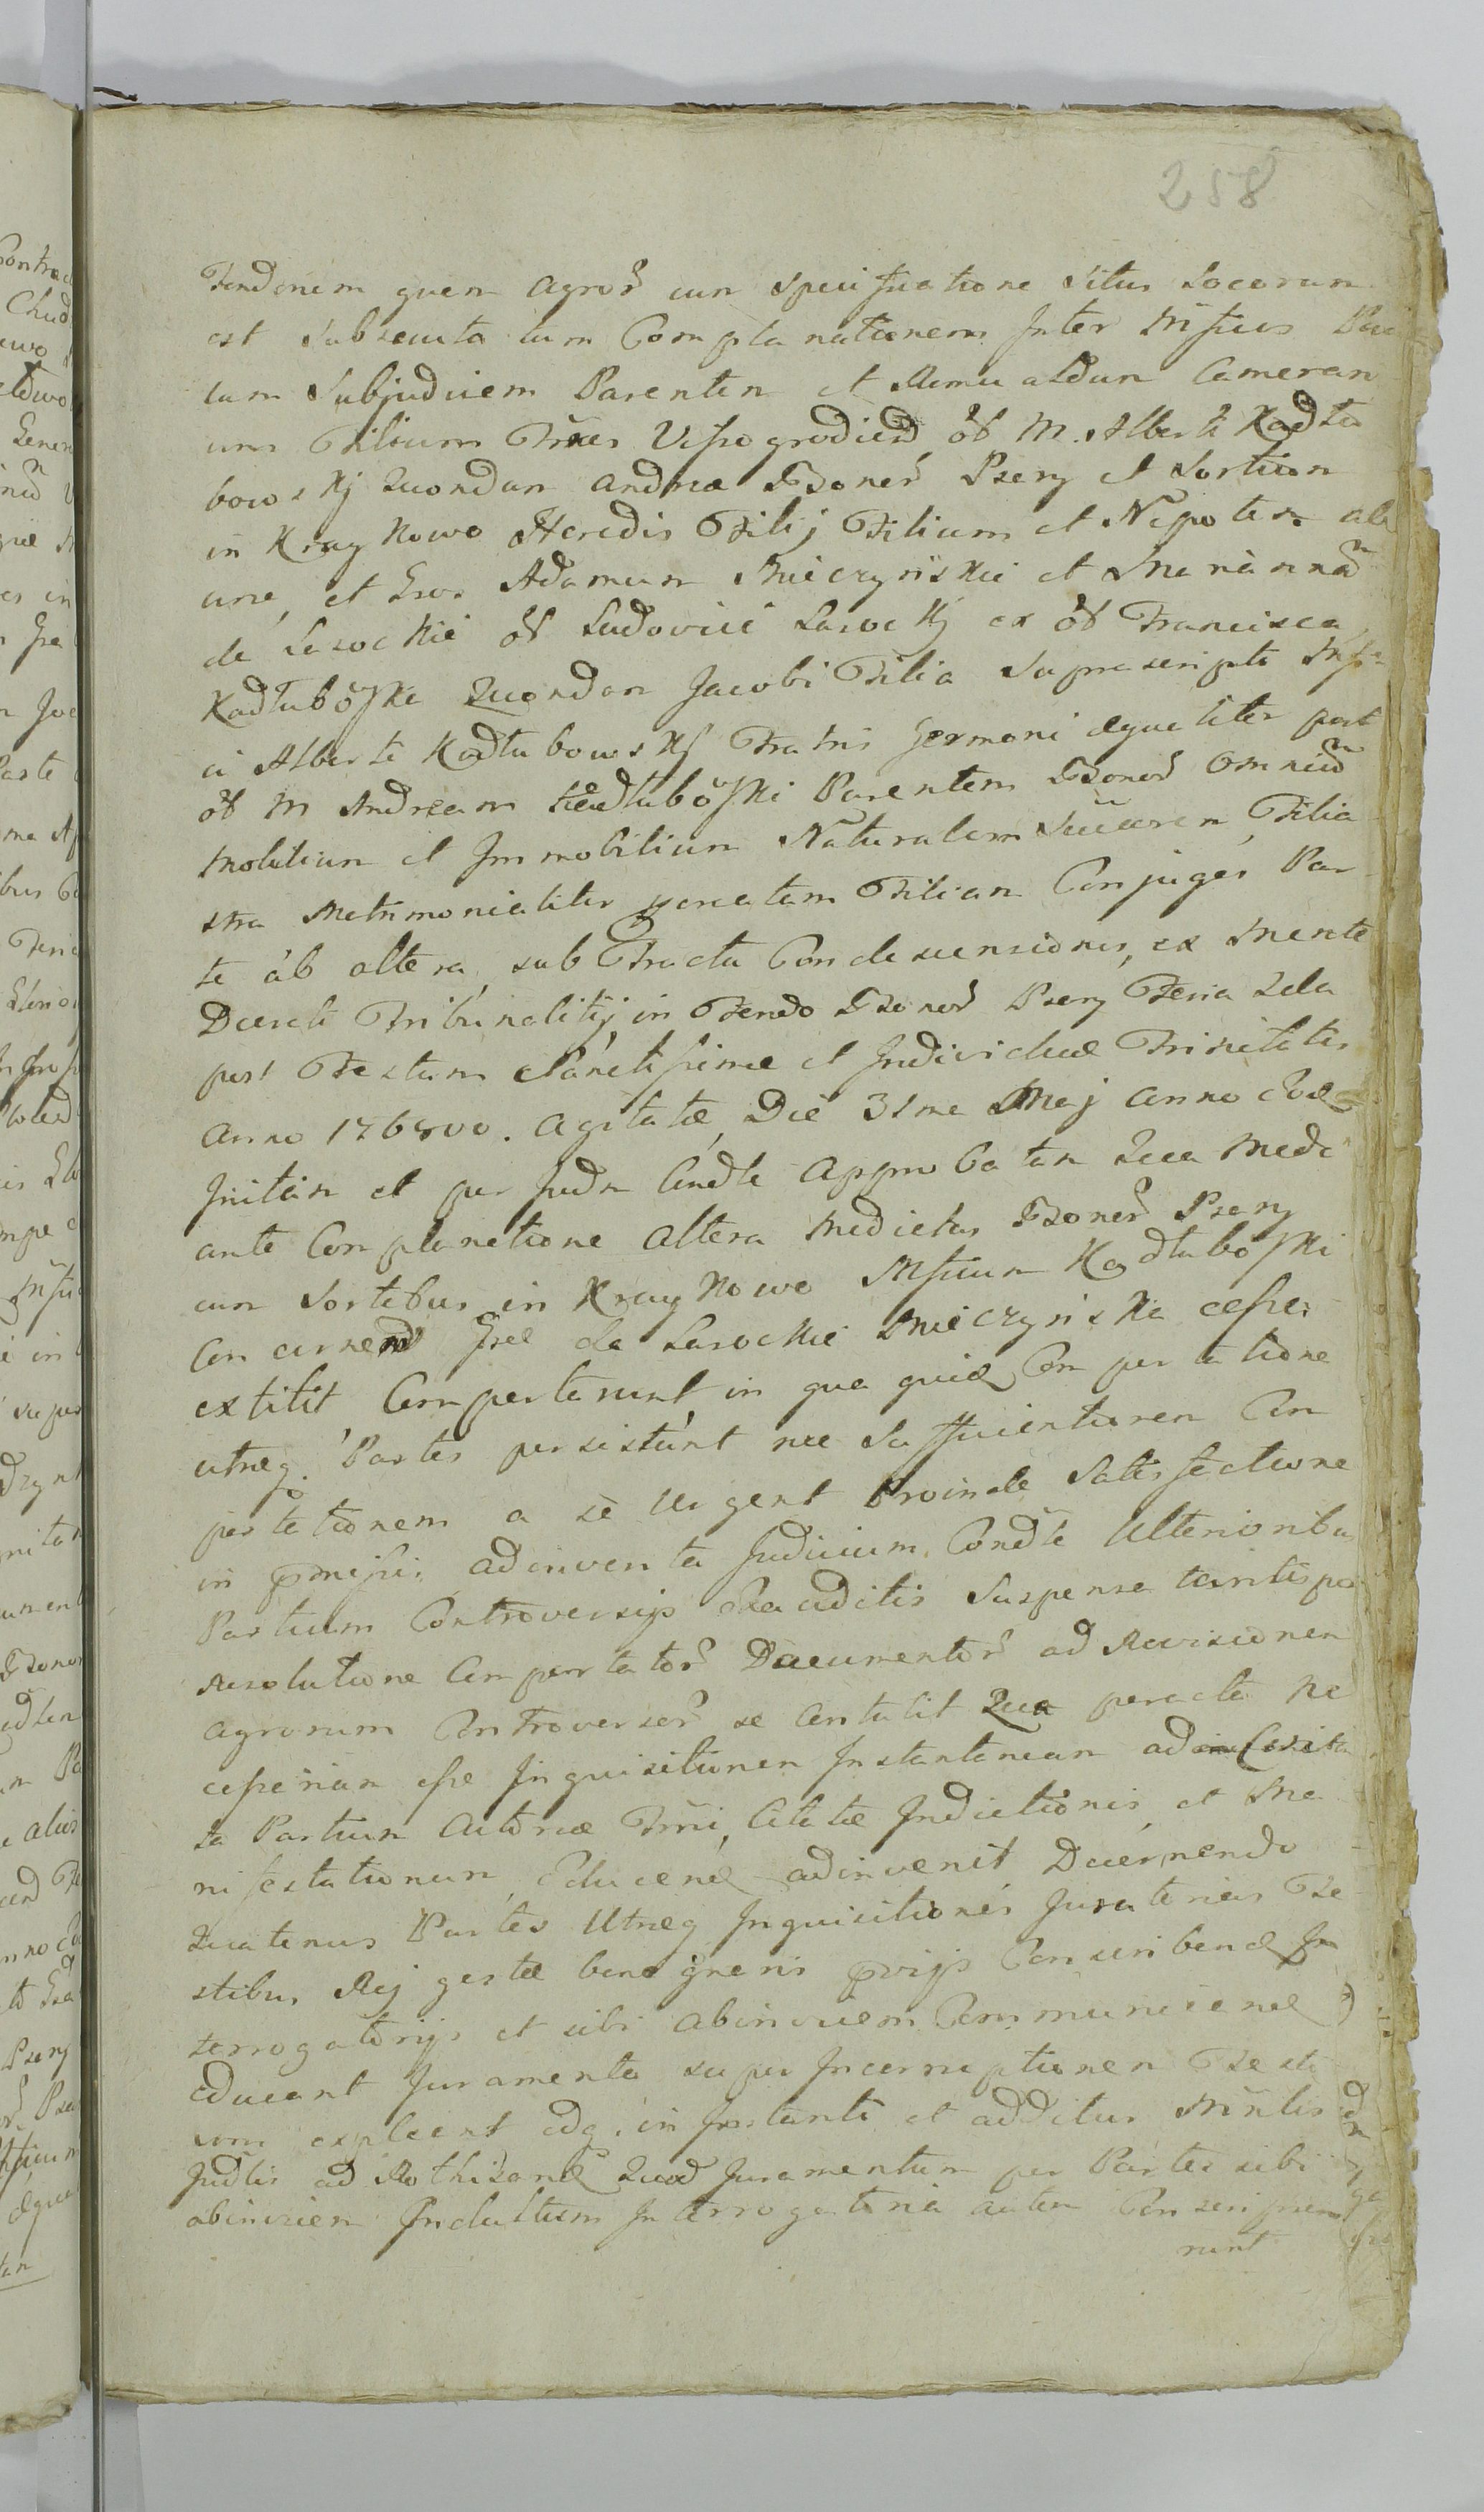 258
Tendenem quem agror̃ cum specificatione situs Locorum
est subsecuta tum Complanationem Inter Mſicos
tum Subjudicem Parentem et Romualdum Cameran
um Filium Fr̃es Viſsogrodień, ol̃ M. Alberti Kadłu
bowskj Quondam Andreæ Bonor̃ Pszeny et Sortium
in Kraykowo Heredis Filij Filium et Nepotem ab
una, et Gsos Adamum Mieczyński et Mariannã
de Lasockie ol̃ Ludovici Lasockj ex ol̃ Francisca
Kadłubõſka Quondam Jacobi Filia Suprascripti Mſi
ci Alberti Kadłubowskj Fratris Germani æqualiter post
ol̃ M Andream Kadłubõſki Parentem Bonor̃ Omniũ
Mobilium et Immobilium Naturalem Succeorem, Filia
stra Matrimonialiter procreatam Filiam Conjuges Par
te ab altera, sub Tractu Condescensionis, ex Mente
Decreti Tribunalitij in Fundo Bonor̃ Pszeny Feria 2da
post Festum Sanctiſsimæ et Individuæ Trinitatis
Anno 176800. agitatæ, Die 31ma Maj anno eod̃
Initam et per Judm Cond̃le Approbatam Qua Medi
ante Complanatione altera Medietas Bonor̃ Pszeny
cum Sortibus in Kraykowo Mſicum Kadłubõſki
Concernen̄ Gsæ de Lasockie Mieczyńska ceſsa
extitit, Comportarunt, in qua quid̃ Comportatione
utræq. Partes persistunt nec Sufficientiorem Com
portationem a se Urgent Proinde Satisfactione
in præmiſsis adinventa Judicium Cond̃le Ulterioribus
Partium Controversijs Exauditis Suspensa tantisper
Resolutione Comportator̃ Documentor̃ ad Revisionem
Agrorum Controversor̃ se Contulit Qua peracta Ne
ceſsariam eſse Inquisitionem Instantaneam ad
ta Partium Actoreæ Trñi, Citatæ Indictionis, et Ma
nifestationum, Educend̃ adinvenit Decernendo
Quatenus Partes Utræq Inquisitiones Juratorias Te
stibus Rej gestæ bene gnaris prævijs Conscribend̃ In
terrogatorijs et sibi abinvicem Communicand̃
educant Juramenta super Incorruptionem Testi
um expleant adq. in Instanti et additus Mñlis
Jud̃lis ad Rothizand̃ Quod Juramentum per Partes sibi
abinvicem Indultum Interrogatoria autem Conscripse
runt